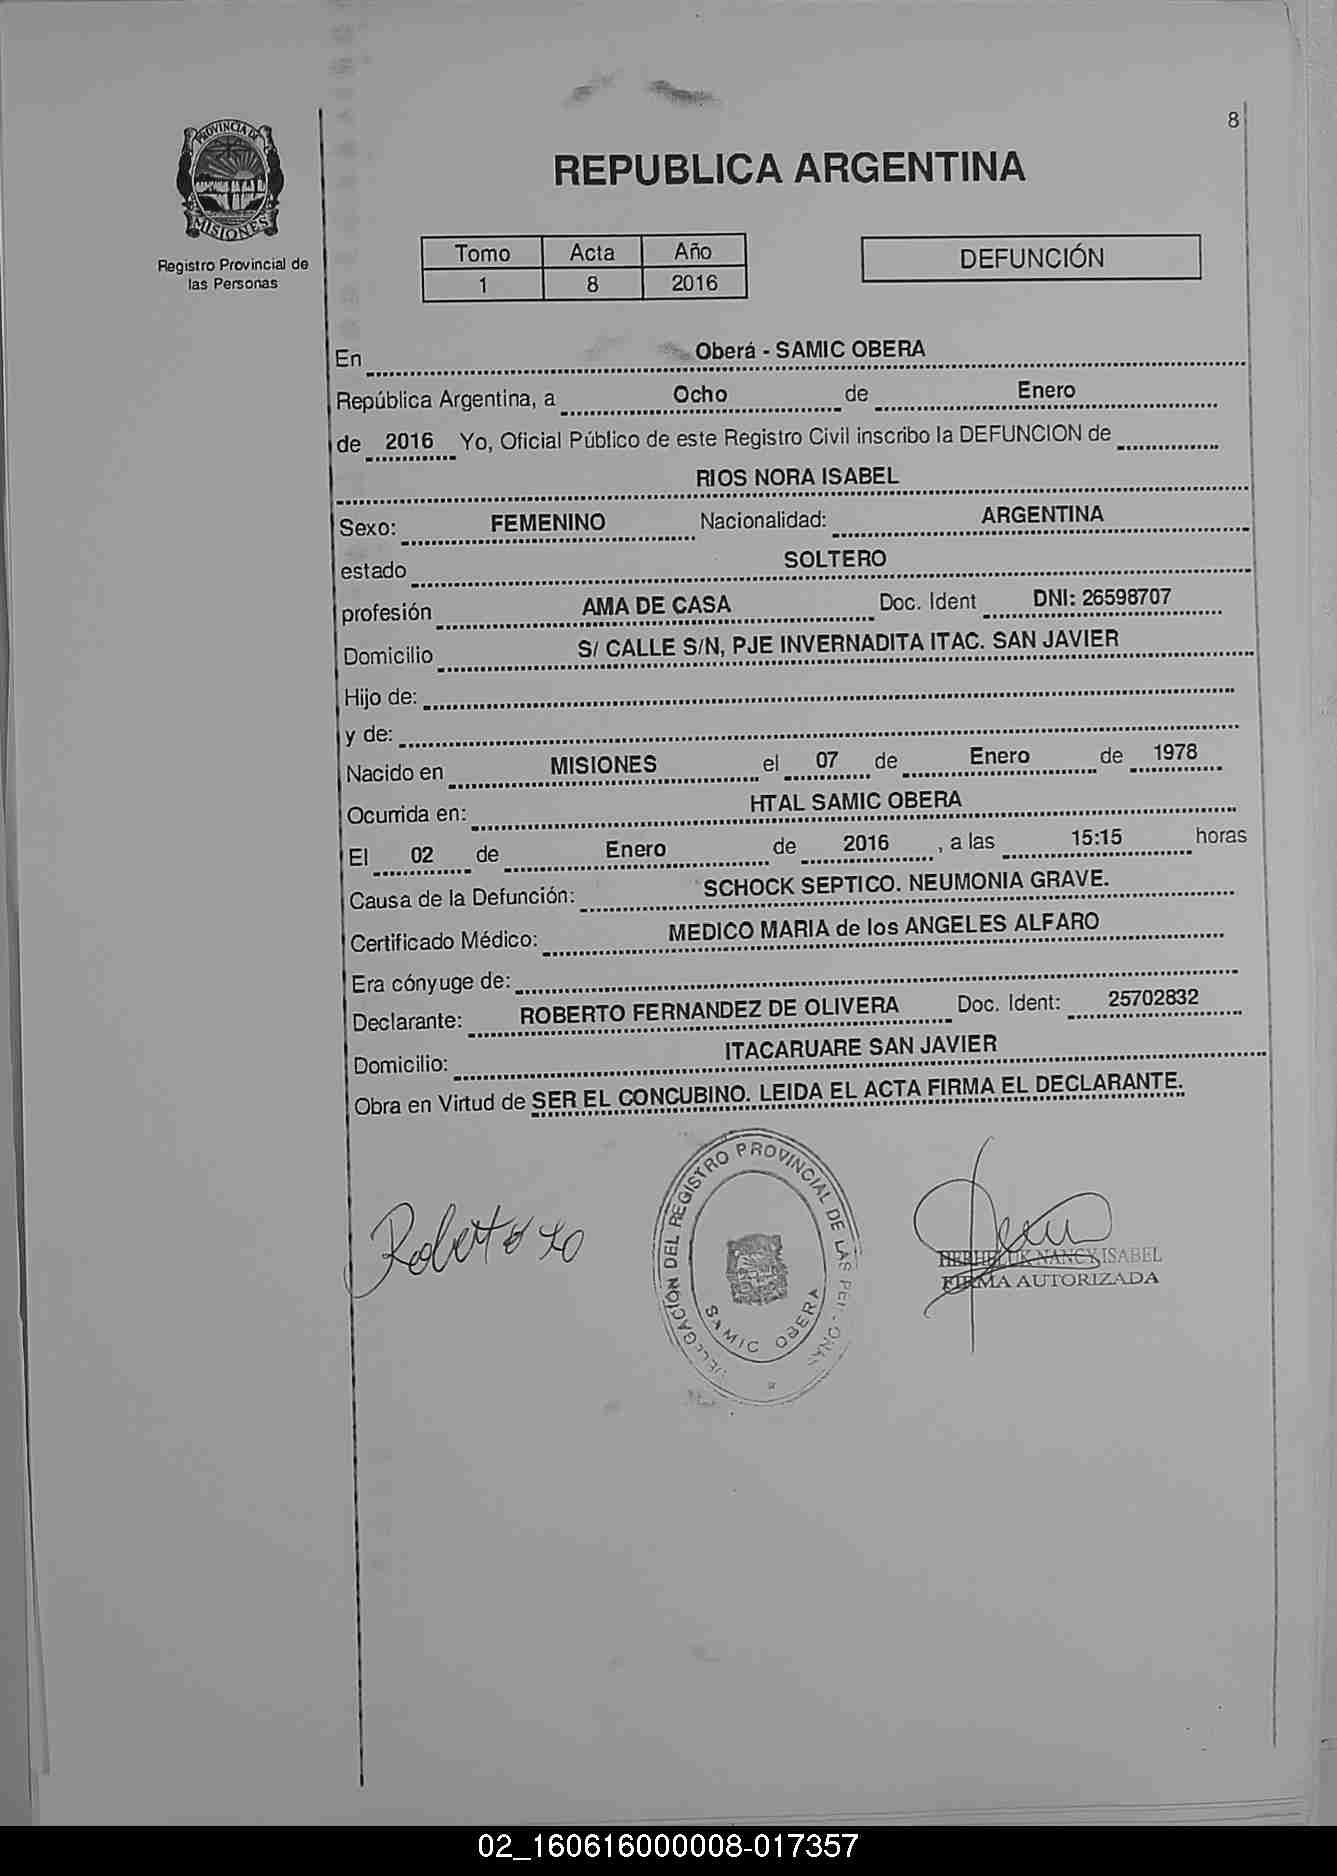 8
PROVINCIA DE
MISIONES
Registro Provincial de
las Personas
REPUBLICA ARGENTINA
Tomo Acta Año
1 8 2016
DEFUNCIÓN
En Oberá - SAMIC OBERA
República Argentina, a Ocho de Enero
de 2016 Yo, Oficial Público de este Registro Civil inscribo la DEFUNCION de
RIOS NORA ISABEL
Sexo: FEMENINO Nacionalidad: ARGENTINA
estado SOLTERO
profesión AMA DE CASA Doc. Ident DNI: 26598707
Domicilio S/ CALLE S/N, PJE INVERNADITA ITAC. SAN JAVIER
Hijo de:
y de:
Nacido en MISIONES el 07 de Enero de 1978
Ocurrida en: HTAL SAMIC OBERA
El 02 de Enero de 2016 , a las 15:15 horas
Causa de la Defunción: SCHOCK SEPTICO. NEUMONIA GRAVE.
Certificado Médico: MEDICO MARIA de los ANGELES ALFARO
Era cónyuge de:
Declarante: ROBERTO FERNANDEZ DE OLIVERA Doc. Ident: 25702832
Domicilio: ITACARUARE SAN JAVIER
Obra en Virtud de SER EL CONCUBINO. LEIDA EL ACTA FIRMA EL DECLARANTE.
DELEGACIÓN DEL REGISTRO PROVINCIAL DE LAS PERSONAS
SAMIC OBERA
Roberto
NANCY ISABEL
FIRMA AUTORIZADA
02_160616000008-017357